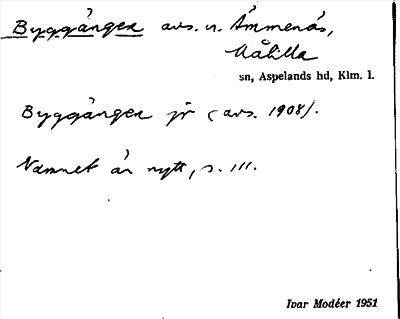 Byggången avs. u. Ämmenäs,
Målilla
sn, Aspelands hd, Klm. l.
Byggången jr (avs. 1908).
Namnet är nytt, s. 111.
Ivar Modéer 1951